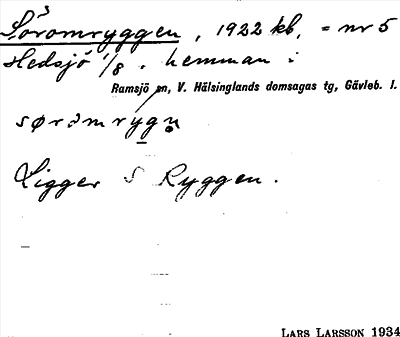 Söromryggen, 1922 kb, = nr 5
Hedsjö 1/8, hemman i
Ramsjö sn, V. Hälsinglands domsagas tg, Gävleb. l.
sørȧmrygn̥
Ligger S Ryggen.
LARS LARSSON 1934